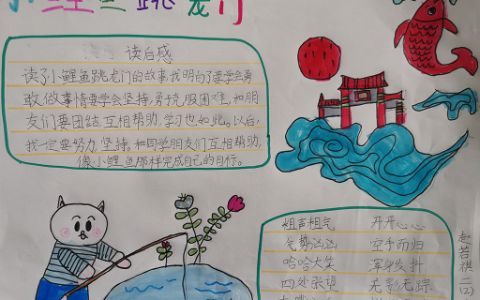 小鲤鱼跳龙门
读后感
读了小鲤鱼跳龙门的故事,我明白了要学会勇
敢,做事情要学会坚持,勇于克服困难,和朋
友们要团结互相帮助,学习也如此。以后,
我一定要努力,坚持。和同学朋友们互相帮助,
像小鲤鱼那样完成自己的目标。
粗声粗气 开开心心
气势汹汹 空手而归
哈哈大笑 浑身发抖
四处张望 无影无踪
赵若祺 二(二)